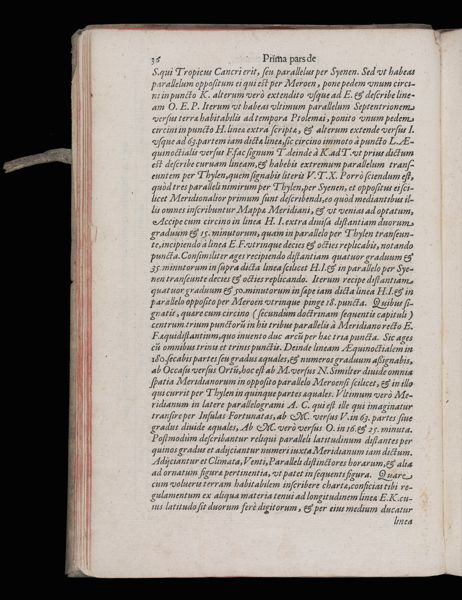 36 Prima pars de
S. qui Tropicus Cancri erit, seu parallelus per Syenen. Sed vt habeas
parallelum oppositum ei qui est per Meroen, pone pedem vnum circi-
ni in puncto K. alterum verò extendito vsque ad E. & describe line-
am O. E. P. Iterum vt habeas vltimum parallelum Septentrionem
versus terræ habitabilis ad tempora Ptolemæi, ponito vnum pedem
circini in puncto H. lineæ extra scriptæ, & alterum extende versus I.
vsque ad 63. partem iam dictæ lineæ, sic circino immoto à puncto L. Æ-
quinoctialis versus F. fac signum T deinde à K. ad T. vt prius dictum
est describe curuam lineam, & habebis extremum parallelum trans-
euntem per Thylen, quem signabis literis V. T. X. Porrò sciendum est,
quòd tres paralleli nimirum per Thylen, per Syenen, et oppositus ei sci-
licet Meridionalior primum sunt describendi, eo quòd mediantibus il-
lis omnes inscribuntur Mappæ Meridiani, & vt venias ad optatum,
Accipe cum circino in linea H. I. extra diuisa distantiam duorum
graduum & 15. minutorum, quam in parallelo per Thylen transeun-
te, incipiendo à linea E F. vtrinque decies & octies replicabis, notando
puncta. Consimiliter ages recipiendo distantiam quatuor graduum &
35 minutorum in supra dicta linea scilicet H. I. & in parallelo per Sye-
nen transeunte decies & octies replicando. Iterum recipe distantiam
quatuor graduum & 50. minutorum in sæpe iam dicta linea H. I. & in
parallelo opposito per Meroen vtrinque pinge 18. puncta. Quibus si-
gnatis, quære cum circino (secundum doctrinam sequentis capituli)
centrum trium punctorū in his tribus parallelis à Meridiano recto E.
F. æquidistantium, quo inuento duc arcū per hæc tria puncta. Sic ages
cū omnibus trinis et trinis punctis. Deinde lineam Æquinoctialem in
180. secabis partes seu gradus æquales, & numeros graduum assignabis,
ab Occasu versus Ortū, hoc est ab M. versus N. Similiter diuide omnia
spatia Meridianorum in opposito parallelo Meroensi scilicet, & in illo
qui currit per Thylen in quinque partes æquales. Vltimum verò Me-
ridianum in latere parallelogrami A. C. qui est ille qui imaginatur
transire per Insulas Fortunatas, ab M. versus V. in 63. partes siue
gradus diuide æquales, Ab M. verò versus O. in 16. & 25. minuta.
Postmodum describantur reliqui paralleli latitudinum distantes per
quinos gradus et adijciantur numeri iuxta Meridianum iam dictum.
Adijciantur et Climata, Venti, Paralleli distinctores horarum, & alia
ad ornatum figuræ pertinentia, vt patet in sequenti figura. Quare
cum volueris terram habitabilem inscribere chartæ, conficias tibi re-
gulamentum ex aliqua materia tenui ad longitudinem lineæ E. K. cu-
ius latitudo sit duorum ferè digitorum, & per eius medium ducatur
linea